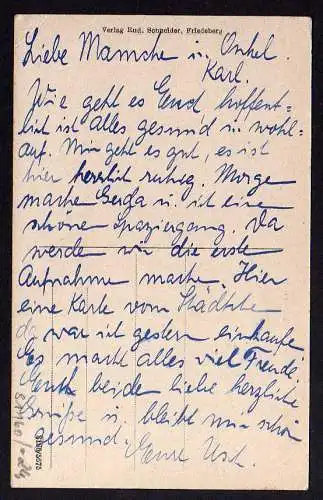 Verlag Rud. Schneider, Friedeberg
Liebe Mamsche u. Onkel
Karl.
Wie geht es Euch, hoffent=
lich ist alles gesund u. wohl=
auf. Mir geht es gut, es ist
hier herrlich ruhig. Morge
mache Gerda u. ich eine
schöne Spaziergang. Da
werde wir die erste
Aufnahme mache. Hier
eine Karte vom Städtche
da war ich gestern einkaufe
Es macht alles viel Freude
Euch beide liebe herzliche
Grüße u. bleibt nur schön
gesund. Eure